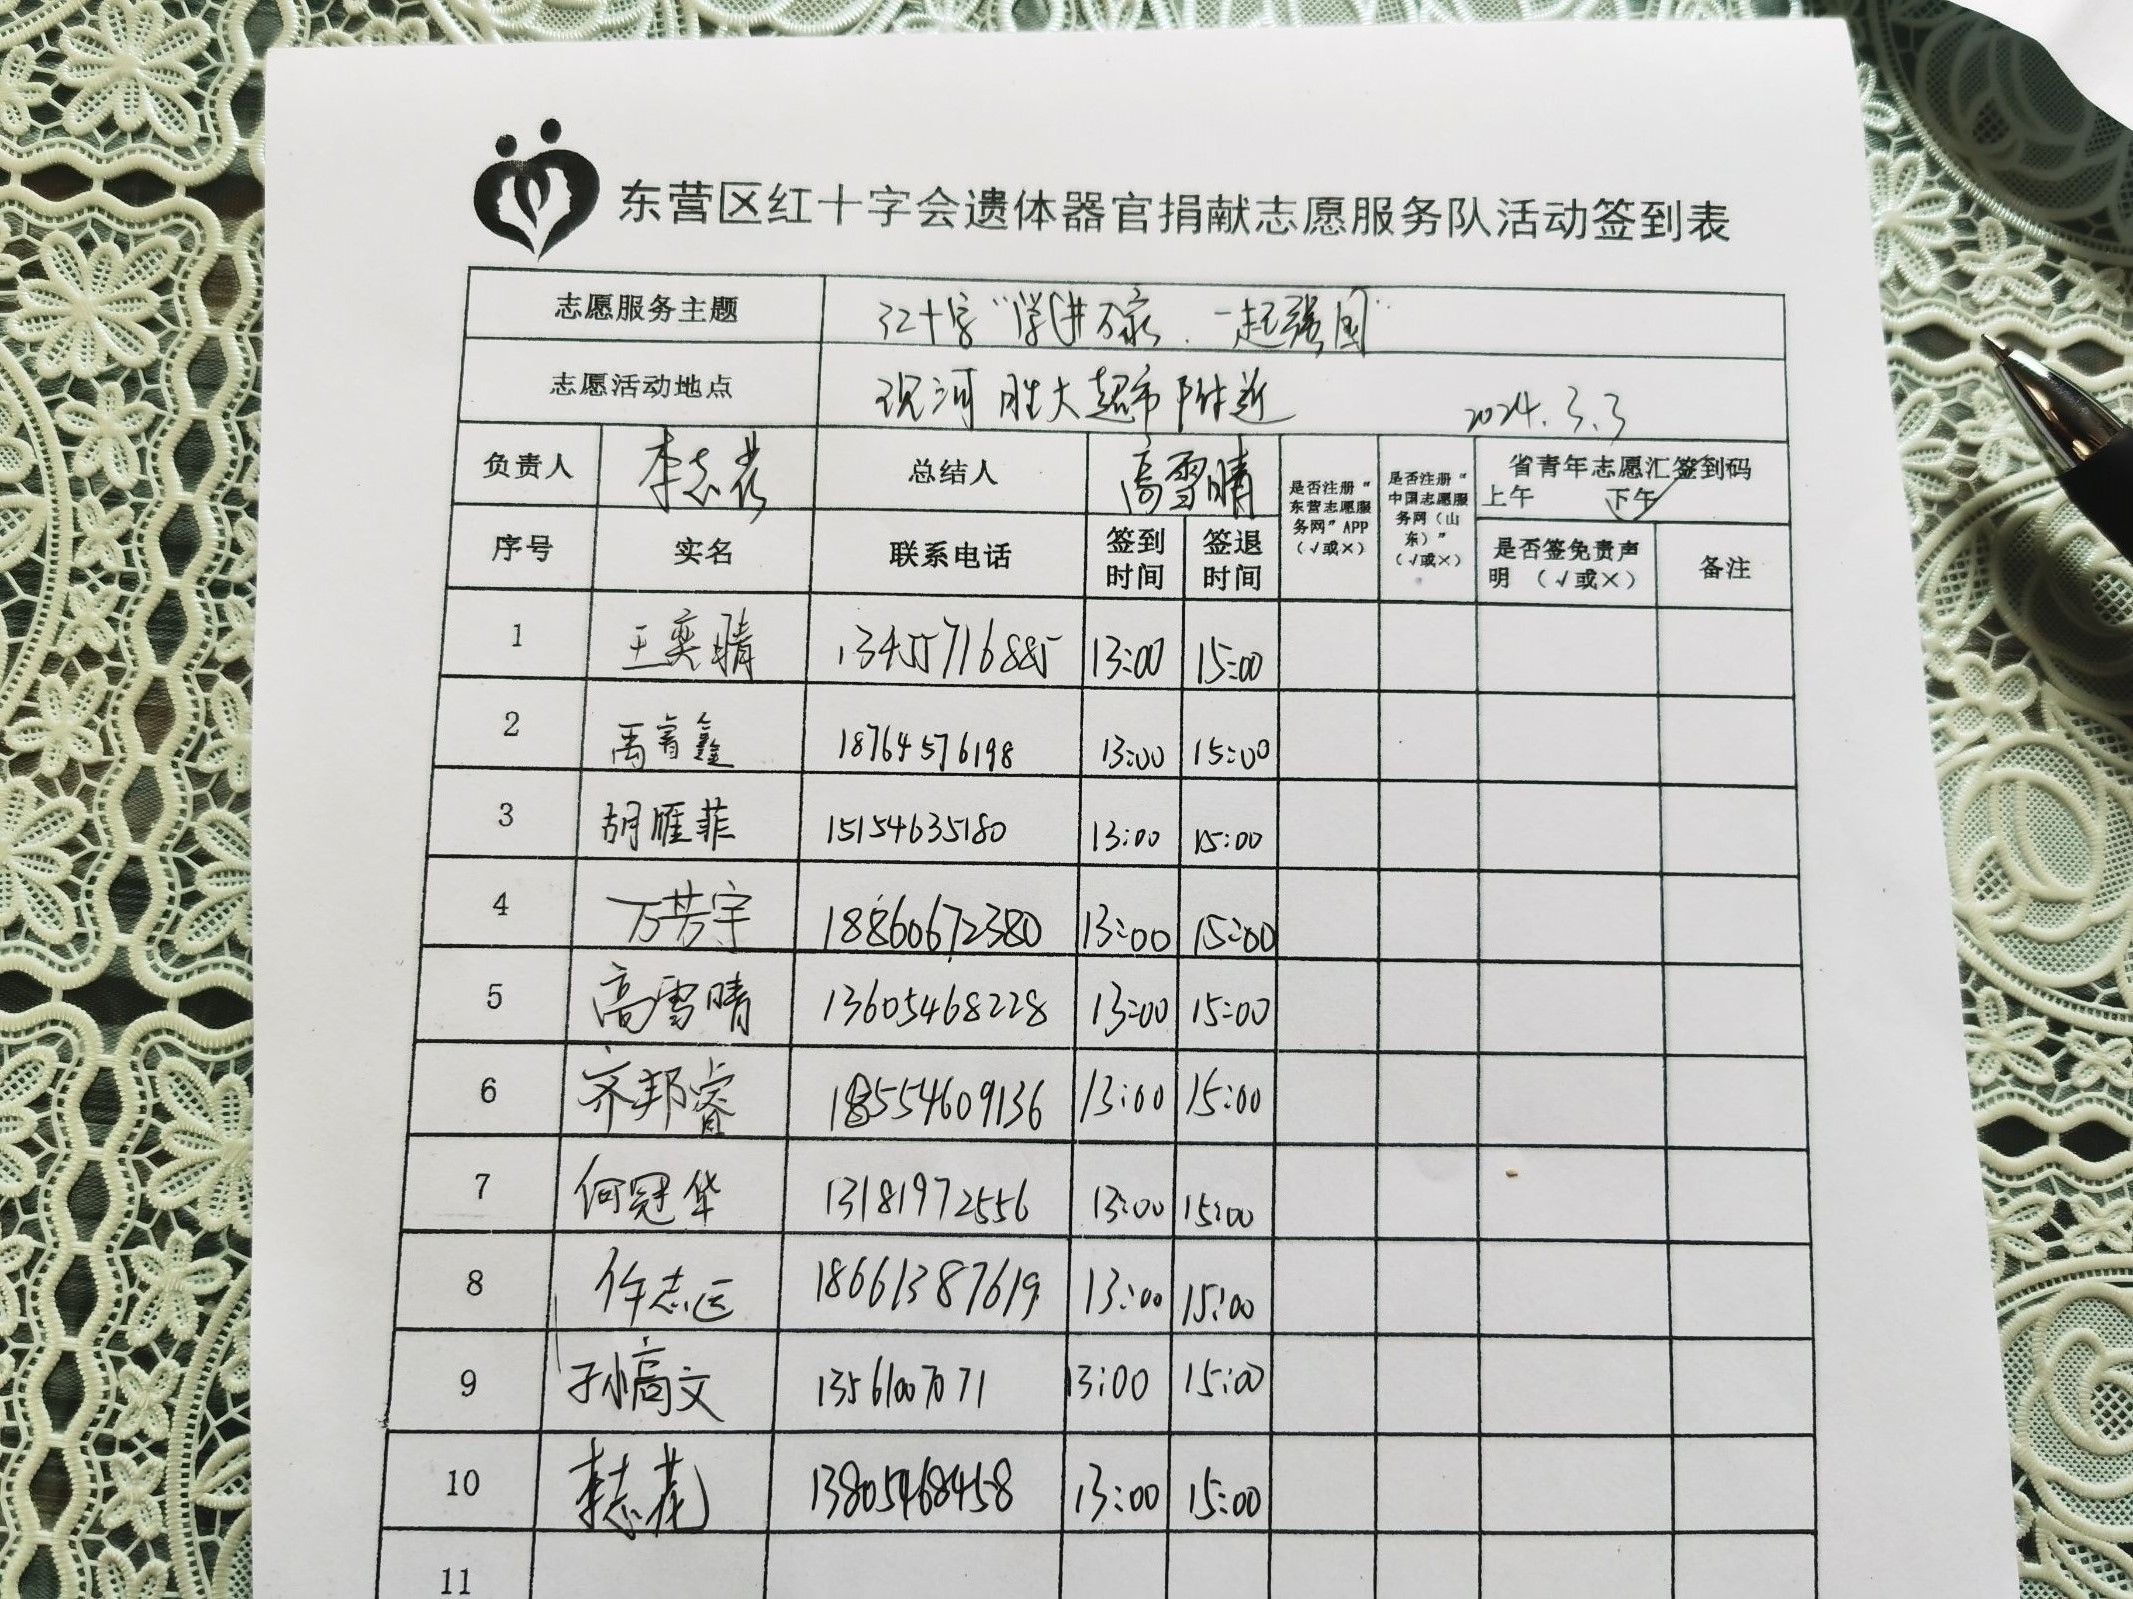 东营区红十字会遗体器官捐献志愿服务队活动签到表
志愿服务主题 红十字“学进万家、一起强国”
志愿活动地点 现河胜大超市附近 2024.3.3
负责人 李志花 总结人 高雪晴 是否注册“东营志愿服务网”APP（√或×） 是否注册“中国志愿服务网（山东）”（√或×） 省青年志愿汇签到码 上午 下午√
序号 实名 联系电话 签到时间 签退时间 是否签免责声明（√或×） 备注
1 王奕晴 13455716885 13:00 15:00
2 禹睿鑫 18764576198 13:00 15:00
3 胡雁菲 15154635180 13:00 15:00
4 万芳宇 18860672380 13:00 15:00
5 高雪晴 13605468228 13:00 15:00
6 齐邦睿 18554609136 13:00 15:00
7 何冠华 13181972556 13:00 15:00
8 许志远 18661387619 13:00 15:00
9 孙高文 13561007071 13:00 15:00
10 李志花 13805468458 13:00 15:00
11